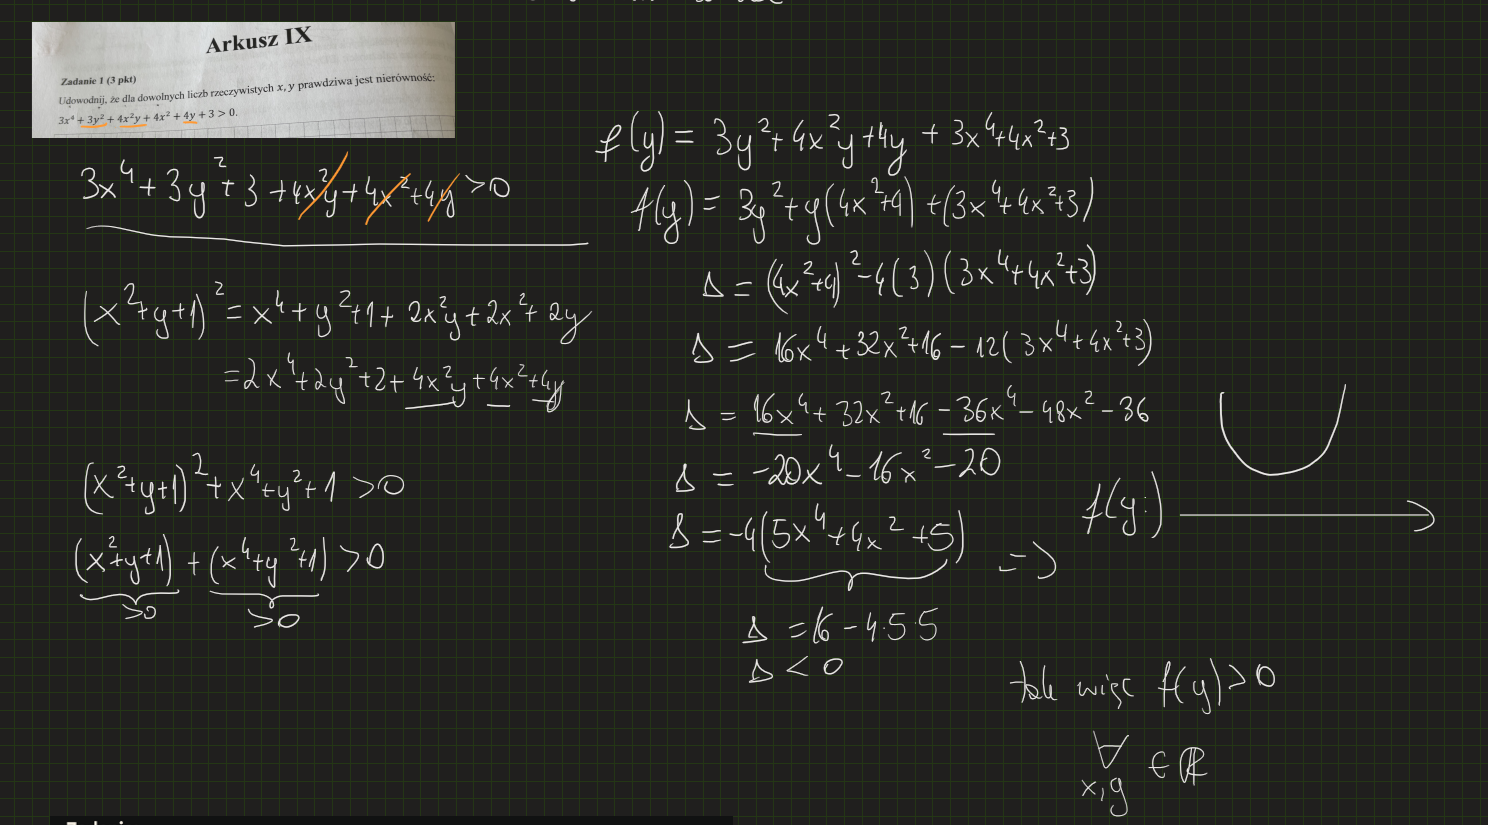 Arkusz IX
Zadanie 1 (3 pkt)
Udowodnij, że dla dowolnych liczb rzeczywistych x, y prawdziwa jest nierówność:
3x⁴ + 3y² + 4x²y + 4x² + 4y + 3 > 0.
3x⁴ + 3y² + 3 + 4x²y + 4x² + 4y > 0
(x² + y + 1)² = x⁴ + y² + 1 + 2x²y + 2x² + 2y
= 2x⁴ + 2y² + 2 + 4x²y + 4x² + 4y
(x² + y + 1)² + x⁴ + y² + 1 > 0
(x² + y + 1) + (x⁴ + y² + 1) > 0
>0 >0
f(y) = 3y² + 4x²y + 4y + 3x⁴ + 4x² + 3
f(y) = 3y² + y(4x² + 4) + (3x⁴ + 4x² + 3)
Δ = (4x² + 4)² - 4(3)(3x⁴ + 4x² + 3)
Δ = 16x⁴ + 32x² + 16 - 12(3x⁴ + 4x² + 3)
Δ = 16x⁴ + 32x² + 16 - 36x⁴ - 48x² - 36
Δ = -20x⁴ - 16x² - 20
Δ = -4(5x⁴ + 4x² + 5) =>
Δ = 16 - 4·5·5
Δ < 0
f(y:)
tak więc f(y) > 0
∀ ∈ ℝ
x, y